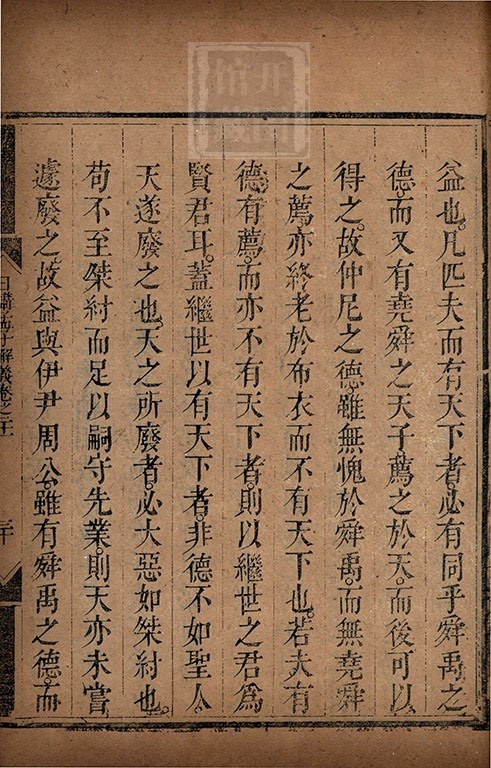 益也。凡匹夫而有天下者。必有同乎舜禹之
德。而又有堯舜之天子。薦之於天。而後可以
得之。故仲尼之德。雖無愧於舜禹。而無堯舜
之薦。亦終老於布衣而不有天下也。若夫有
德。有薦。而亦不有天下者。則以繼世之君為
賢君耳。蓋繼世以有天下者。非德不如聖人。
天遂廢之也。天之所廢者。必大惡如桀紂也。
苟不至桀紂而足以嗣守先業。則天亦未嘗
遽廢之。故益與伊尹周公。雖有舜禹之德。而
日講孟子解義卷之二十